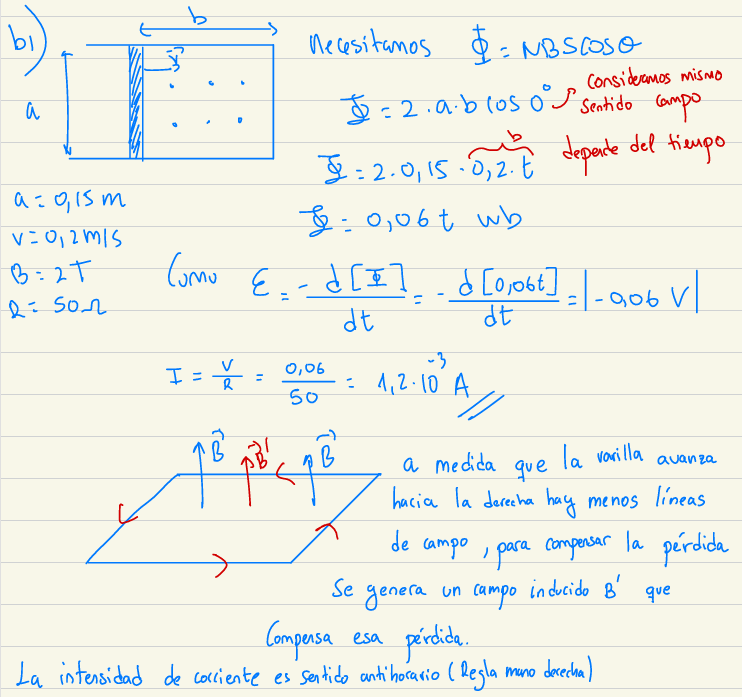 b1)
b
a
v⃗
Necesitamos Φ = NBScosθ
Φ = 2·a·b cos 0° Consideramos mismo
sentido campo
b
Φ = 2·0,15·0,2·t depende del tiempo
Φ = 0,06t wb
a = 0,15 m
v = 0,2 m/s
B = 2T
R = 50Ω
Como ε = - d[Φ]/dt = - d[0,06t]/dt = |-0,06 V|
I = V/R = 0,06/50 = 1,2·10⁻³ A
B⃗ B⃗' B⃗
a medida que la varilla avanza
hacia la derecha hay menos líneas
de campo, para compensar la pérdida
Se genera un campo inducido B' que
Compensa esa pérdida.
La intensidad de corriente es sentido antihorario (Regla mano derecha)